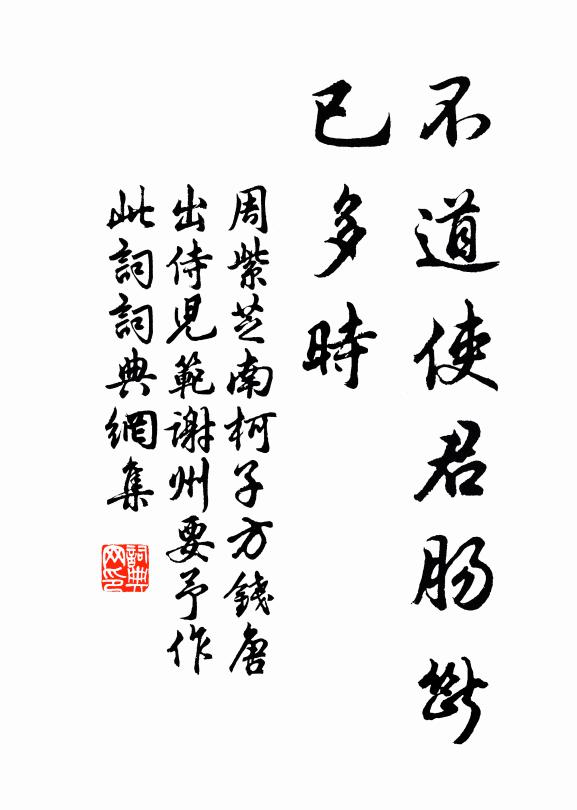 不道使君肠斷
已多時
周紫芝南柯子方錢唐
出侍兒範謝州要予作
此詞詞典網集
詞典网印